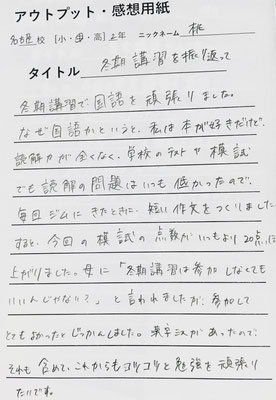 アウトプット・感想用紙
名古屋校 [小・中・高] 2年 ニックネーム 桃
タイトル 冬期講習を振り返って
冬期講習で国語を頑張りました。
なぜ国語かというと、私は本が好きだけど、
読解力が全くなく、学校のテストや模試
でも読解の問題はいつも低かったので、
毎回ジムにきたときに、短い作文をつくりました
すると、今回の模試の点数がいつもより20点以上
上がりました。母に「冬期講習は参加しなくても
いいんじゃない?」と言われましたが、参加して
とてもよかったとじっかんしました。漢字ミスがあったので、
それも含めて、これからもコツコツと勉強を頑張り
たいです。